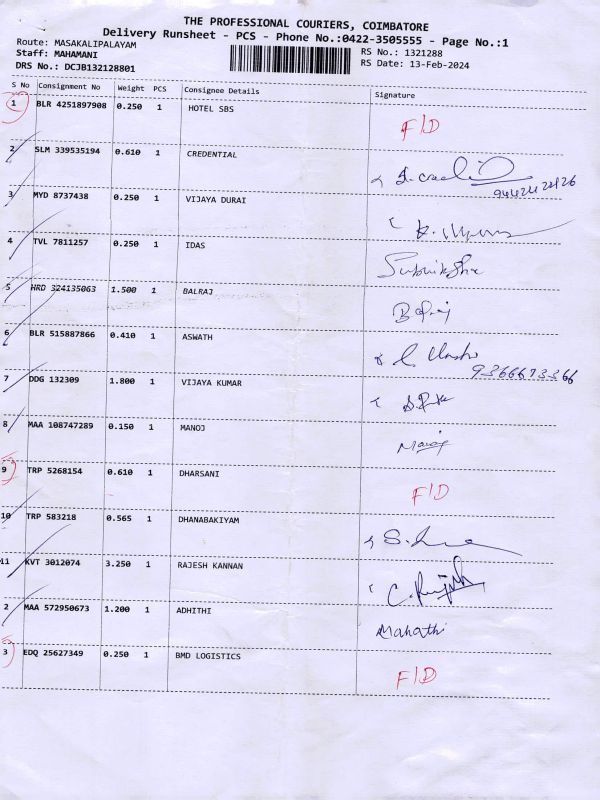 THE PROFESSIONAL COURIERS, COIMBATORE
Delivery Runsheet - PCS - Phone No.:0422-3505555 - Page No.:1
Route: MASAKALIPALAYAM
Staff: MAHAMANI
DRS No.: DCJB132128801
RS No.: 1321288
RS Date: 13-Feb-2024
S No Consignment No Weight PCS Consignee Details Signature
1 BLR 4251897908 0.250 1 HOTEL SBS F/D
2 SLM 339535194 0.610 1 CREDENTIAL
9442424426
3 MYD 8737438 0.250 1 VIJAYA DURAI
4 TVL 7811257 0.250 1 IDAS
5 HRD 324135063 1.500 1 BALRAJ
6 BLR 515887866 0.410 1 ASWATH
9366673366
7 DDG 132309 1.800 1 VIJAYA KUMAR
8 MAA 108747289 0.150 1 MANOJ Manoj
9 TRP 5268154 0.610 1 DHARSANI F/D
10 TRP 583218 0.565 1 DHANABAKIYAM
11 KVT 3012074 3.250 1 RAJESH KANNAN
2 MAA 572950673 1.200 1 ADHITHI Mahathi
3 EDQ 25627349 0.250 1 BMD LOGISTICS F/D